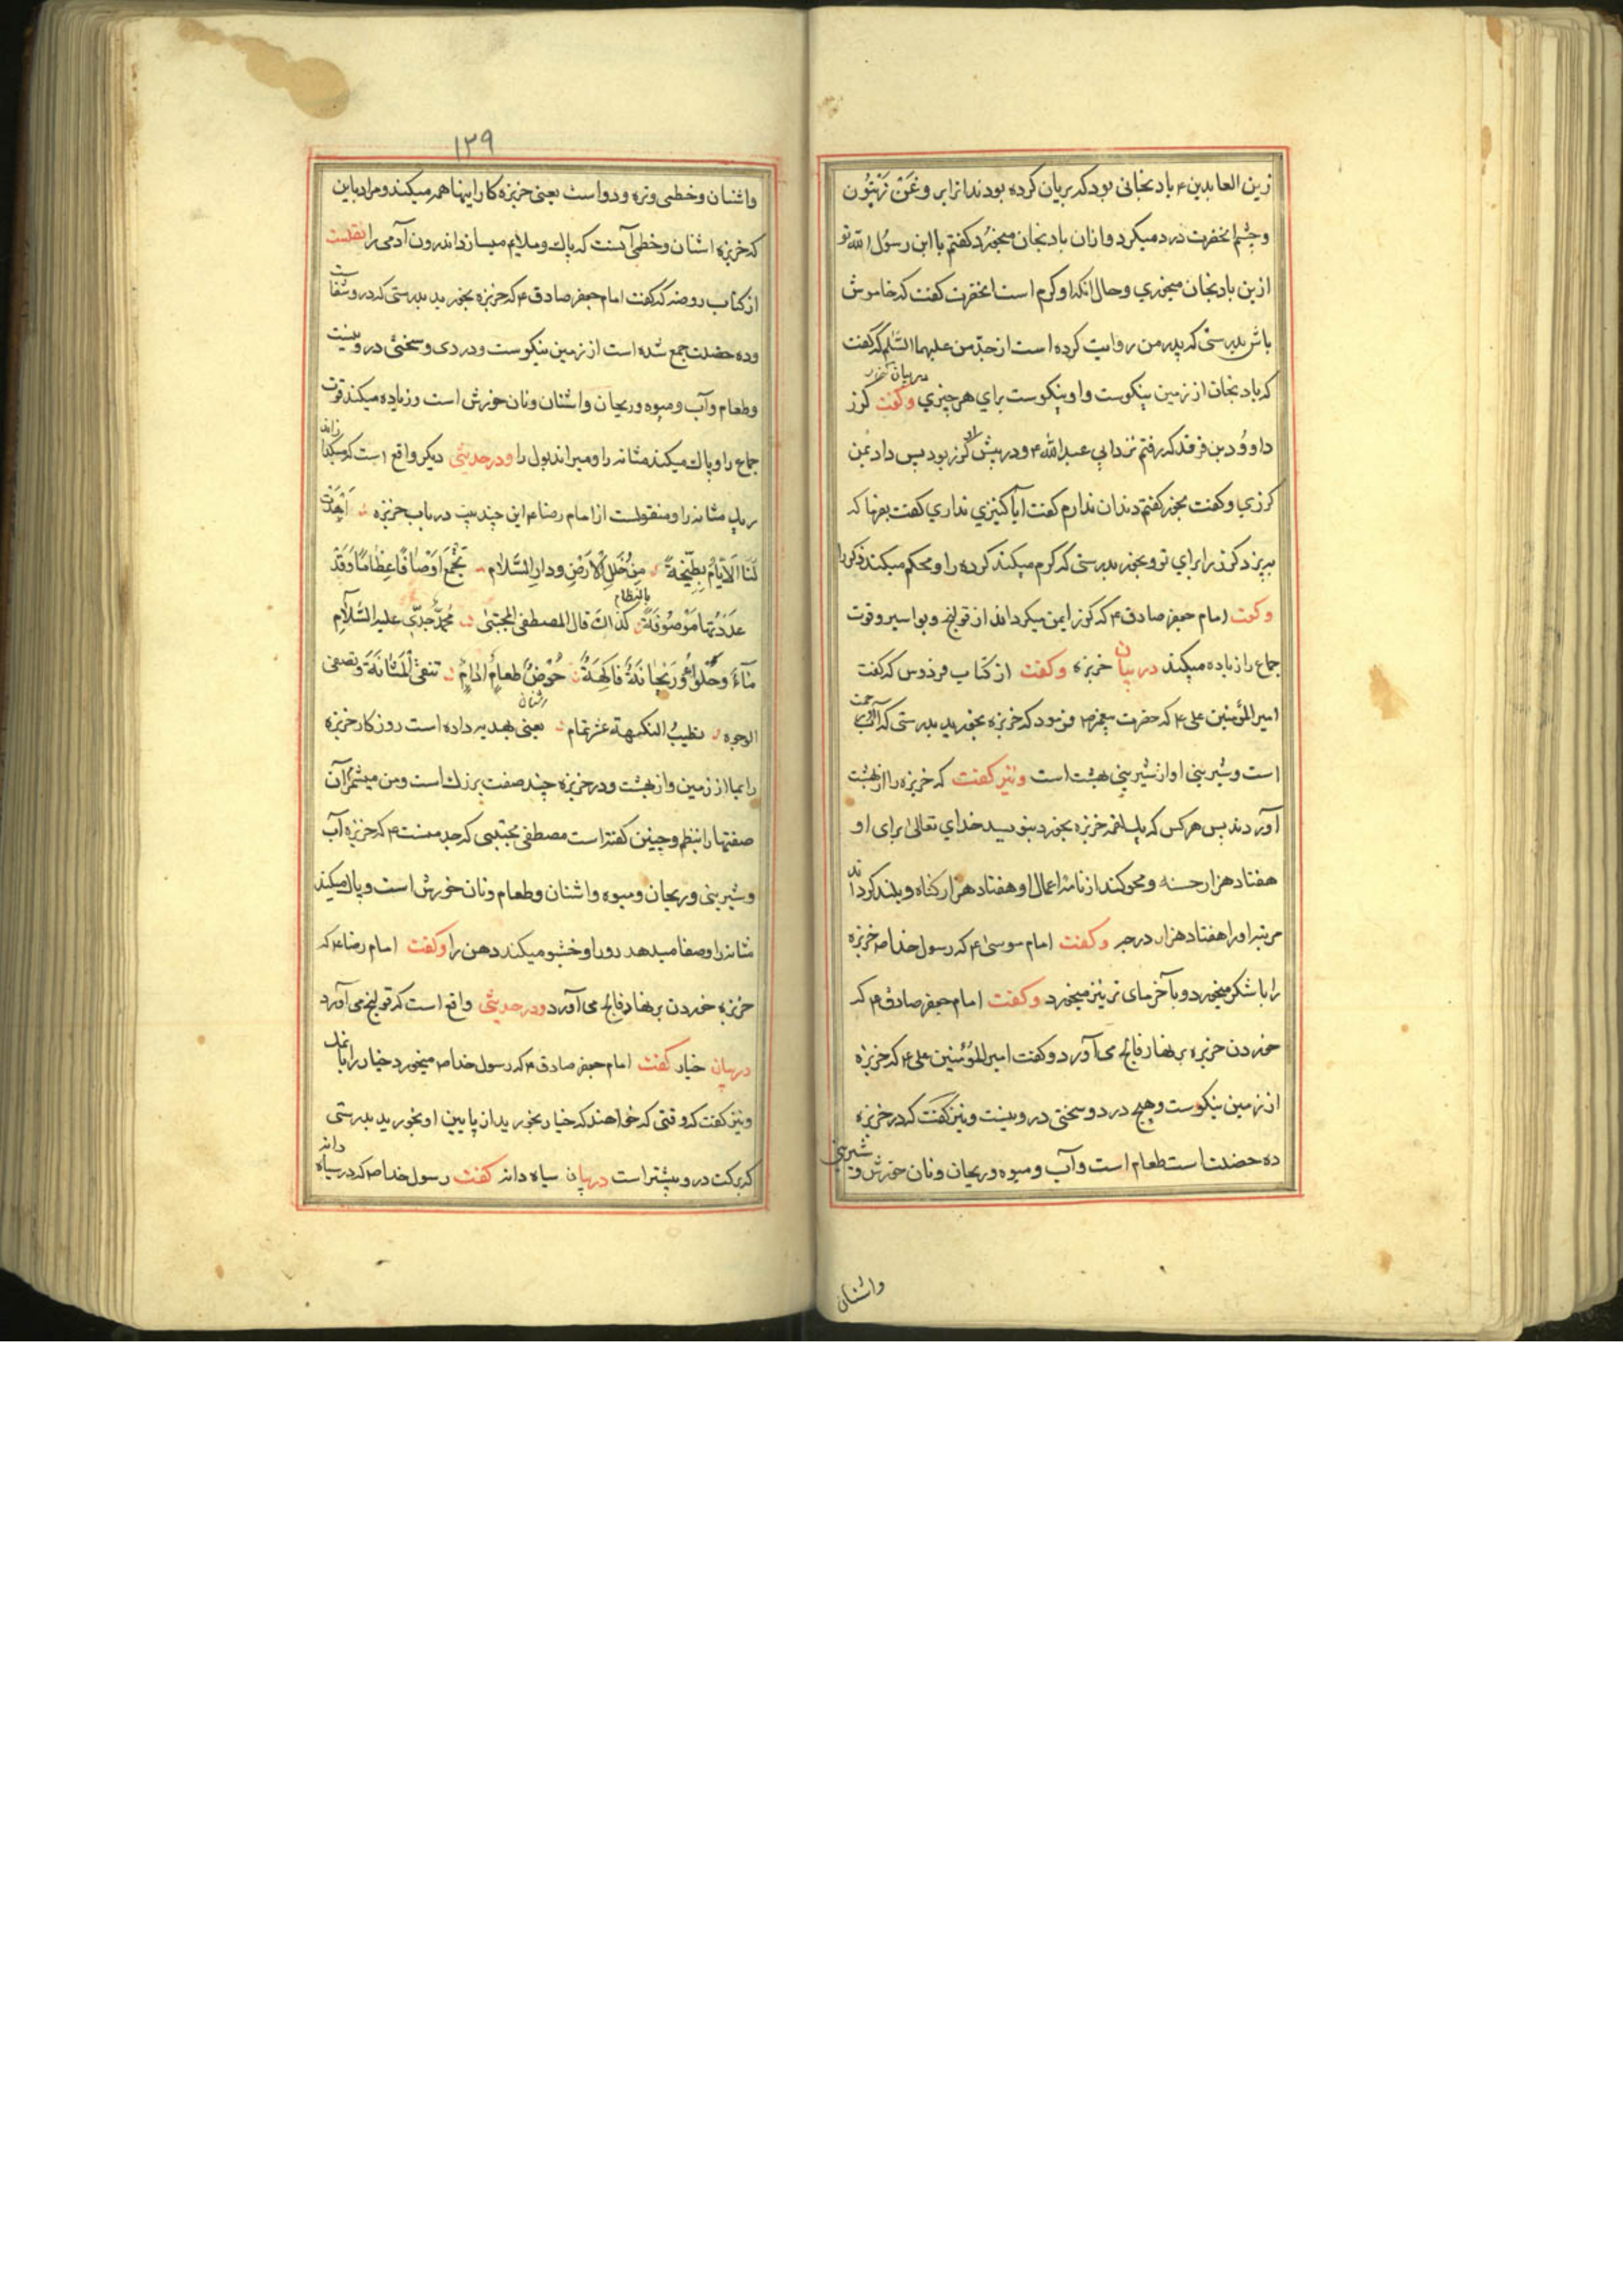 زین العابدین ۴ بادنجانی بود که بریان کرده بودند انرا بروغن زیتون
وچشم انحضرت درد میکرد وازان بادنجان میخورد کفتم یا ابن رسول الله تو
ازین بادنجان میخوري وحال انکه او کرم است انحضرت کفت که خاموش
باش بدرستی که پدر من روایت کرده است از جد من علیهما السلم که کفت
که بادنجان از زمین نیکوست واو نیکوست براي هر چیزي وکفت
داوود بن فرقد که رفتم نزد ابي عبدالله ۴ ودر پیش او کزر بود پس داد بمن
کزري وکفت بخور کفتم دندان ندارم کفت آیا کنیزي نداري کفت بفرما که
بپزد کزر را براي تو وبخور بدرستی که کرم میکند کرده را ومحکم میکند ذکر را
وکفت امام جعفر صادق ۴ که کزر ایمن میکرداند از قولنج وبواسیر وقوت
جماع را زیاده میکند در بیان خربزه وکفت از کتاب فردوس که کفت
امیر المؤمنین علی ۴ که حضرت پیغمبر ص فرمود که خربزه بخورید بدرستی که آب او رحمت
است وشیرینی او از شیرینی بهشت است ونیز کفت که خربزه را از بهشت
آوردند پس هر کس که یك لقمه خربزه بخورد بنویسد خداي تعالی برای او
هفتاد هزار حسنه ومحو کند از نامۀ اعمال او هفتاد هزار کناه وبلند کرداند
مرتبۀ او را هفتاد هزار درجه وکفت امام موسی ۴ که رسول خدا ص خربزه
را با شکر میخورد وبا خرمای تر نیز میخورد وکفت امام جعفر صادق ۴ که
خوردن خربزه بر نهار فالج می آورد وکفت امیر المؤمنین علی ۴ که خربزه
از زمین نیکوست وهیچ درد وسختی درو نیست ونیز کفت که در خربزه
ده خصلت است طعام است وآب ومیوه وریحان ونان خورش وشیرینی
واشنان
۱۳۹
واشنان وخطمی وتره ودواست یعنی خربزه کار اینها همه میکند ومراد باین
که خربزه اشنان وخطمی آنست که پاك وملایم میسازد اندرون آدمی را نقلست
از کتاب روضه که کفت امام جعفر صادق ۴ که خربزه بخورید بدرستی که درو شفاست
وده خصلت جمع شده است از زمین نیکوست ودردی وسختی درو نیست
وطعام وآب ومیوه وریحان واشنان ونان خورش است وزیاده میکند قوت
جماع را وپاك میکند مثانه را ومیراند بول را ودر حدیثی دیکر واقع است که میکدازاند
ریك مثانه را ومنقولست از امام رضا ۴ این چند بیت در باب خربزه اهدت
لنا الایام بطیخة من حلل الارض ودار السلام تجمع اوصافا عظاما وقد
عددتها موصوفة بالنظام کذاك قال المصطفی المجتبی محمد جدي علیه السلام
ماء وحلواء وریحانة فاکهة حرض طعام ادام تنقی المثانة وتصفی
الوجوه تطیب النکهة عشر تمام یعنی بهدیه داده است روزکار خربزه
را بما از زمین واز بهشت ودر خربزه چند صفت بزرك است ومن میشمرم آن
صفتها را بنظم وچنین کفته است مصطفی مجتبی که جد منست ۴ که خربزه آب
وشیرینی وریحان ومیوه واشنان وطعام ونان خورش است وپاك میکند
مثانه را وصفا میدهد رو را وخشبو میکند دهن را وکفت امام رضا ۴ که
خربزه خوردن بر نهار فالج می آورد ودر حدیثی واقع است که قولنج می آورد
در بیان خیار کفت امام جعفر صادق ۴ که رسول خدا ص میخورد خیار را با نمك
ونیز کفت که وقتی که خواهند که خیار بخورید از پایین او بخورید بدرستی
که برکت درو بیشتر است در بیان سیاه دانه کفت رسول خدا ص که در سیاه دانه